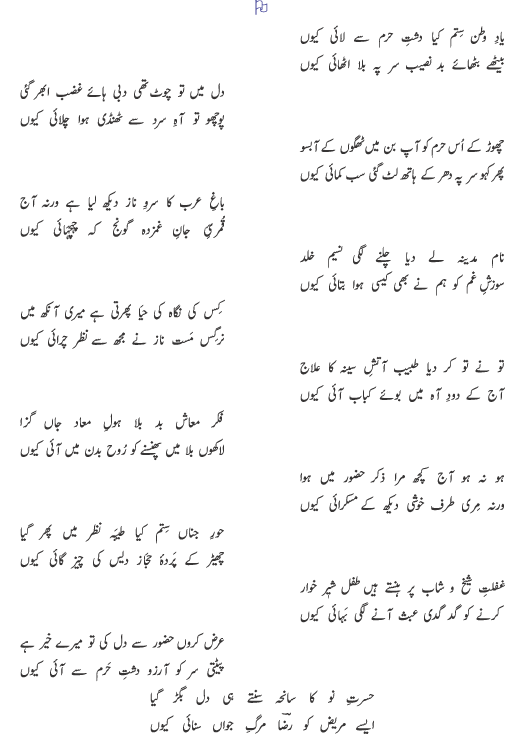 یادِ وطن سِتم کیا دشتِ حرم سے لائی کیوں
بیٹھے بٹھائے بد نصیب سر پہ بلا اٹھائی کیوں
دل میں تو چوٹ تھی دبی ہائے غضب ابھر گئی
پوچھو تو آہِ سرد سے ٹھنڈی ہوا چلائی کیوں
چھوڑ کے اُس حرم کو آپ بن میں ٹھگوں کے آبسو
پھر کہو سر پہ دھر کے ہاتھ لٹ گئی سب کمائی کیوں
باغِ عرب کا سروِ ناز دیکھ لیا ہے ورنہ آج
قُمریِ جانِ غمزدہ گونج کہ چہچہائی کیوں
نام مدینہ لے دیا چلنے لگی نسیم خلد
سوزشِ غم کو ہم نے بھی کیسی ہوا بتائی کیوں
کِس کی نگاہ کی حیا پھرتی ہے میری آنکھ میں
نرگس مَست ناز نے مجھ سے نظر چرائی کیوں
تو نے تو کر دیا طبیب آتشِ سینہ کا علاج
آج کے دودِ آہ میں بوئے کباب آئی کیوں
فکر معاش بد بلا ہولِ معاد جاں گزا
لاکھوں بلا میں پھنسنے کو رُوح بدن میں آئی کیوں
ہو نہ ہو آج کچھ مرا ذکر حضور میں ہوا
ورنہ مِری طرف خوشی دیکھ کے مسکرائی کیوں
حورِ جناں سِتم کیا طیبَہ نظر میں پھر گیا
چھیڑ کے پَردۂ حجاز دیس کی چیز گائی کیوں
غفلتِ شیخ و شاب پر ہنستے ہیں طفل شیر خوار
کرنے کو گد گدی عبث آنے لگی بَہائی کیوں
عرض کروں حضور سے دل کی تو میرے خیر ہے
پیٹتی سر کو آرزو دشتِ حَرم سے آئی کیوں
حسرتِ نو کا سانحہ سنتے ہی دل بگڑ گیا
ایسے مریض کو رضؔا مرگِ جواں سنائی کیوں